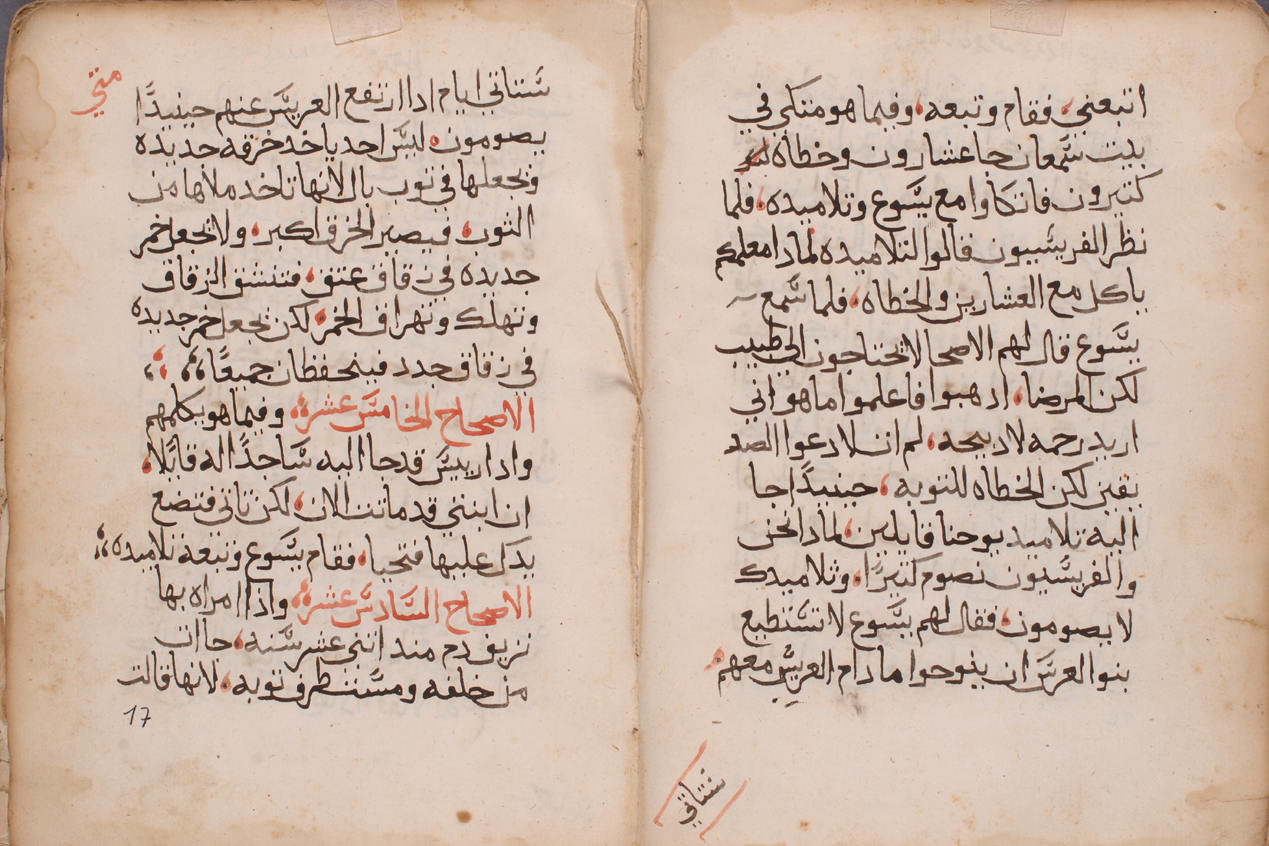 اتبعني، فقام وتبعه، وفيما هو متكي في
بيت سمعان جا عشارون وخطاه
كتيرون فاتكاوا مع يسوع وتلاميده، فلما
نظر الفريسيون قالوا لتلاميده لمادا معلمكم
ياكل مع العشارين والخطاه، فلما سمع
يسوع قال لهم الاصحا لا تحتاجون الي طبيب
لكن المرضا، ادهبوا فاعلموا ما هو اني
اريد رحمه لا دبيحه، لم ات لادعوا الصد
يقين لكن الخطاه للتوبه، حينيدًا جا
اليه تلاميد يوحنا قايلين، لمادا نحن
والفريسيون نصوم كتيرًا، وتلاميدك
لا يصومون، فقال لهم يسوع لا تستطيع
بنوا العرس ان ينوحوا ما دام العريس معهم
ستاتي
متي
ستاتي ايام ادا ارتفع العريس عنهم حينيدًا
يصومون، ليس احد ياخد خرقه جديده
ويجعلها في توب بال لانها تاخد ملاها من
الثوب، فيصير الخرق اكبر، ولا تجعل خمر
جديده في زقاق عتق، فتنشق الزقاق
وتهلك وتهراق الخمر، لكن تجعل خمر جديده
في زقاق جدد فينحفظان جميعًا،
الاصحاح الخامس عشر، وفيما هو يكلمهم
وادا ريس قد جا اليه ساجدًا له قايلا،
ان ابنتي قد ماتت الان، لكن تاتي فتضع
يدك عليها فتحيا، فقام يسوع وتبعه تلاميده،
الاصحاح السادس عشر، واذا امراه بها
نزيف دم مند اتني عشر سنه، جات
من خلفه ومسّت طرف توبه، لانها قالت
17